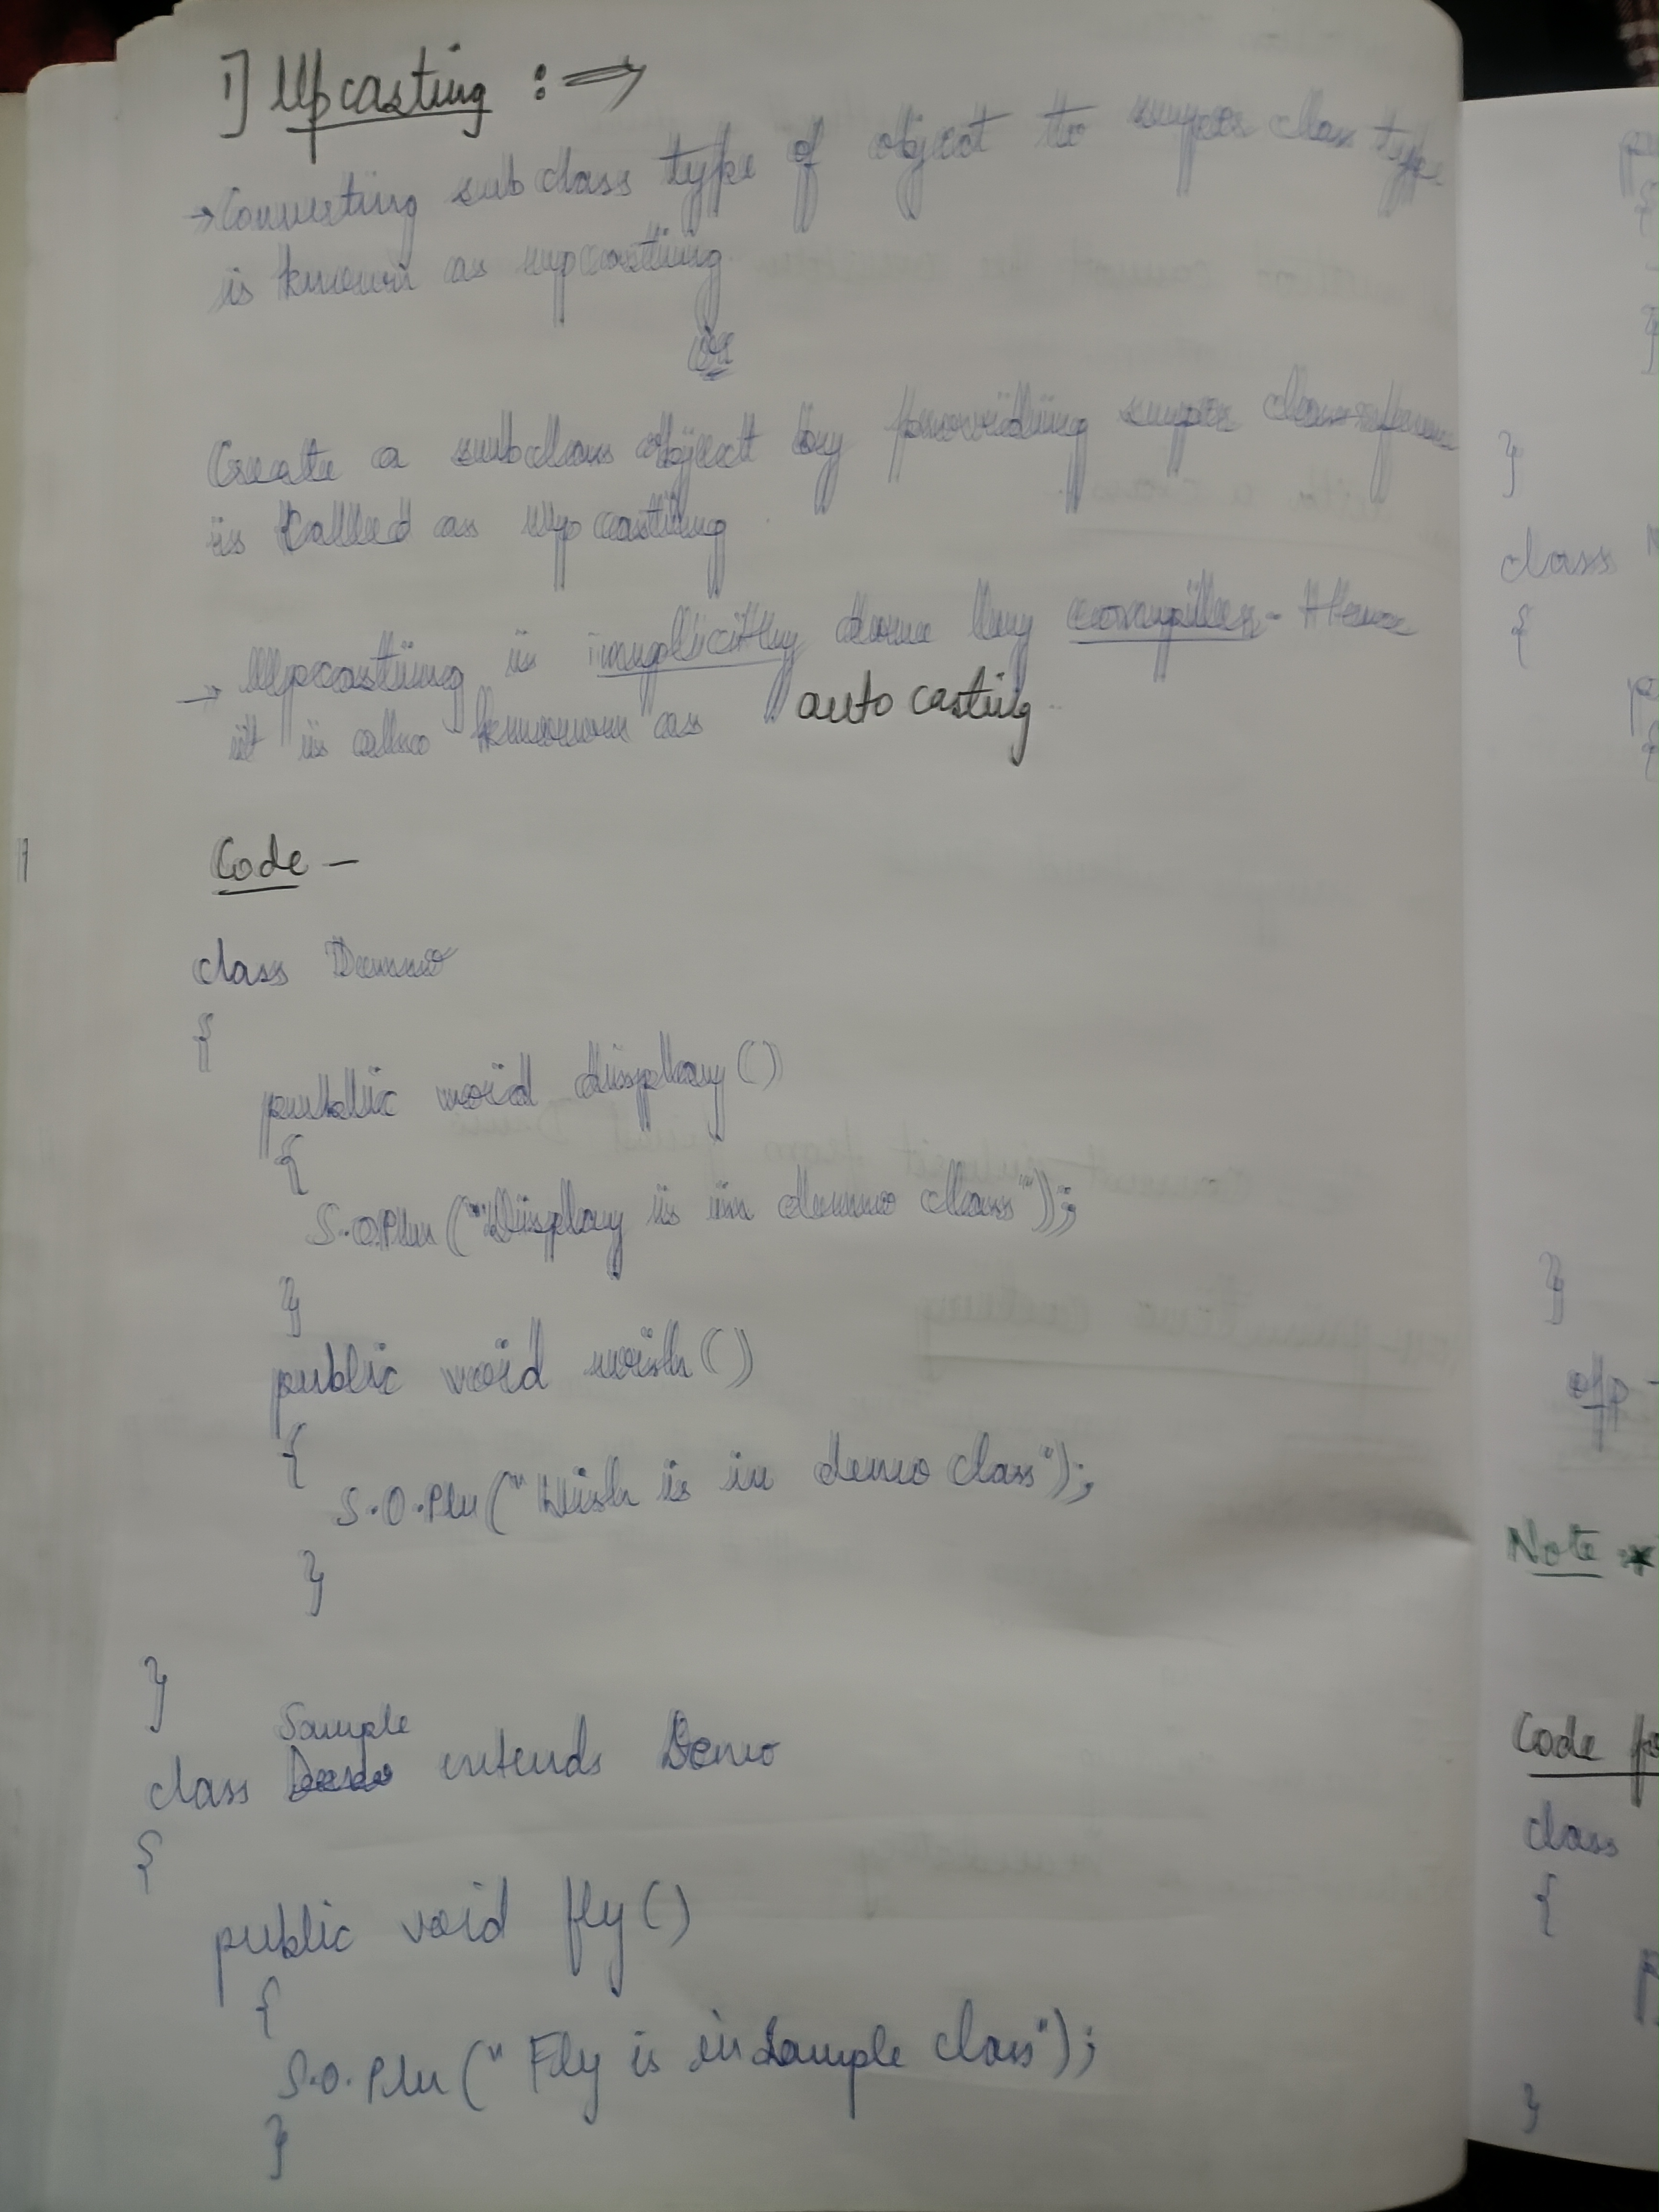 1] Upcasting :⇒
→ Converting sub class type of object to super class type
is known as upcasting.
or
Create a subclass object by providing super class reference
is called as Upcasting.
→ Upcasting is implicitly done by compiler - Hence
it is also known as auto casting.
Code -
class Demo
{
public void display()
{
S.O.Pln("Display is in demo class");
}
public void wish()
{
S.O.Pln("Wish is in demo class");
}
}
Sample
class extends Demo
{
public void fly()
{
S.O.Pln("Fly is in Sample class");
}
{
}
}
class
{
{
}
o/p -
Note :*
Code
class
{
}